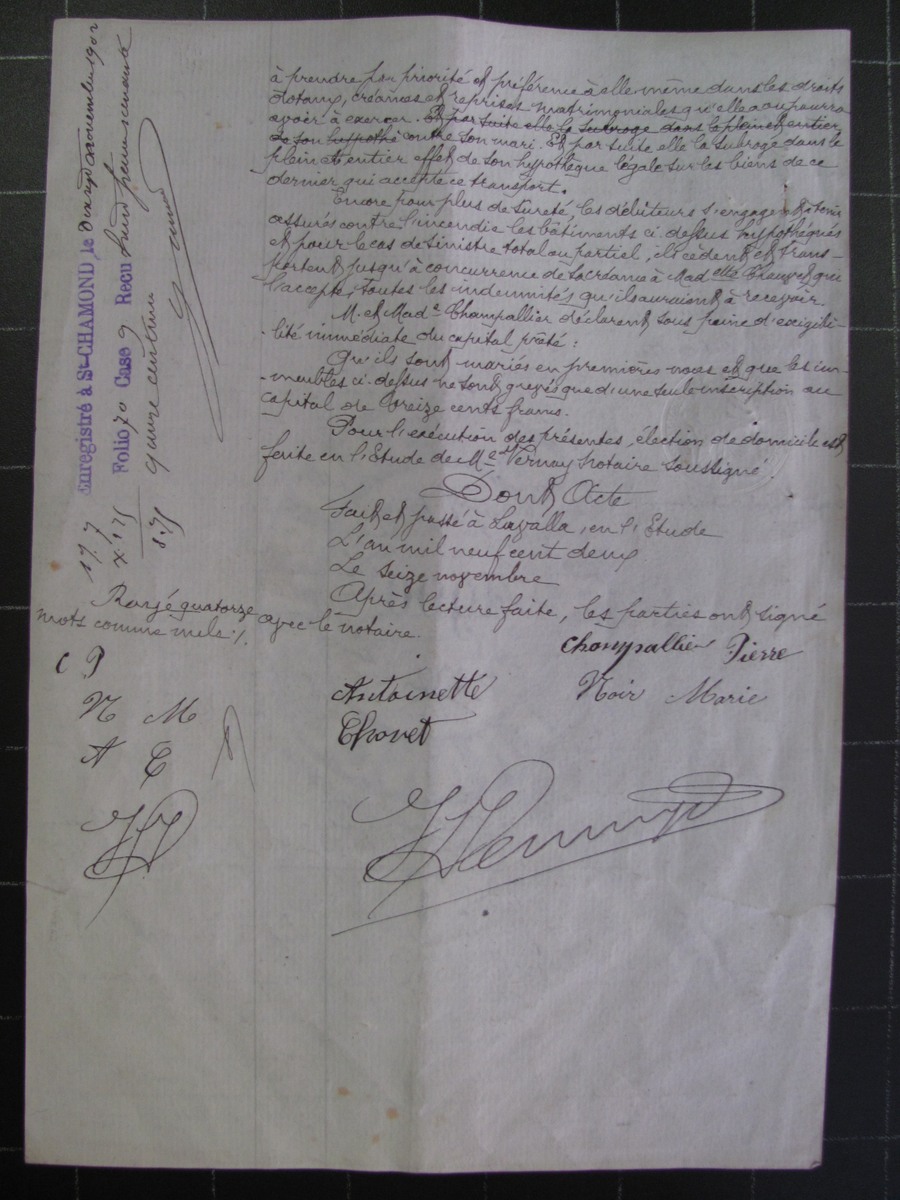 à prendre par priorité et préférence à elle même dans les droits
dotaux, créances et reprises matrimoniales qu'elle a ou pourra
avoir à exercer. Et par suite elle la subroge dans le plein et entier
de son hypothè contre son mari. Et par suite elle la subroge dans le
plein et entier effet de son hypothèque légale sur les biens de ce
dernier qui accepte ce transport.
Encore pour plus de sureté, les débiteurs s'engagent à tenir
assurés contre l'incendie les bâtiments ci-dessus hypothéqués
et pour le cas de sinistre total ou partiel, ils cèdent et trans-
portent jusqu'à concurrence de sa créance à Madelle qui
l'accepte, toutes les indemnités qu'ils auraient à recevoir.
M. et Made Champallier déclarent sous peine d'exigibi-
-lité immédiate du capital prêté:
Qu'ils sont mariés en premières noces et que les im-
-meubles ci-dessus ne sont grevés que d'une seule inscription au
capital de treize cents francs.
Pour l'exécution des présentes, élection de domicile est
faite en l'Etude de Me Vernay notaire soussigné.
Dont Acte
Fait et passé à Lavalla, en l'Etude
L'an mil neuf cent deux
Le seize novembre
Après lecture faite, les parties ont signé
avec le notaire.
Champallier Pierre
Antoinette Noir Marie
Thovet
Rayé quatorze
mots comme nuls ./.
C P
N M
A T
Enregistré à St-CHAMOND, le dix neuf novembre 1902
Folio 70 Case 9 Reçu
quinze centimes